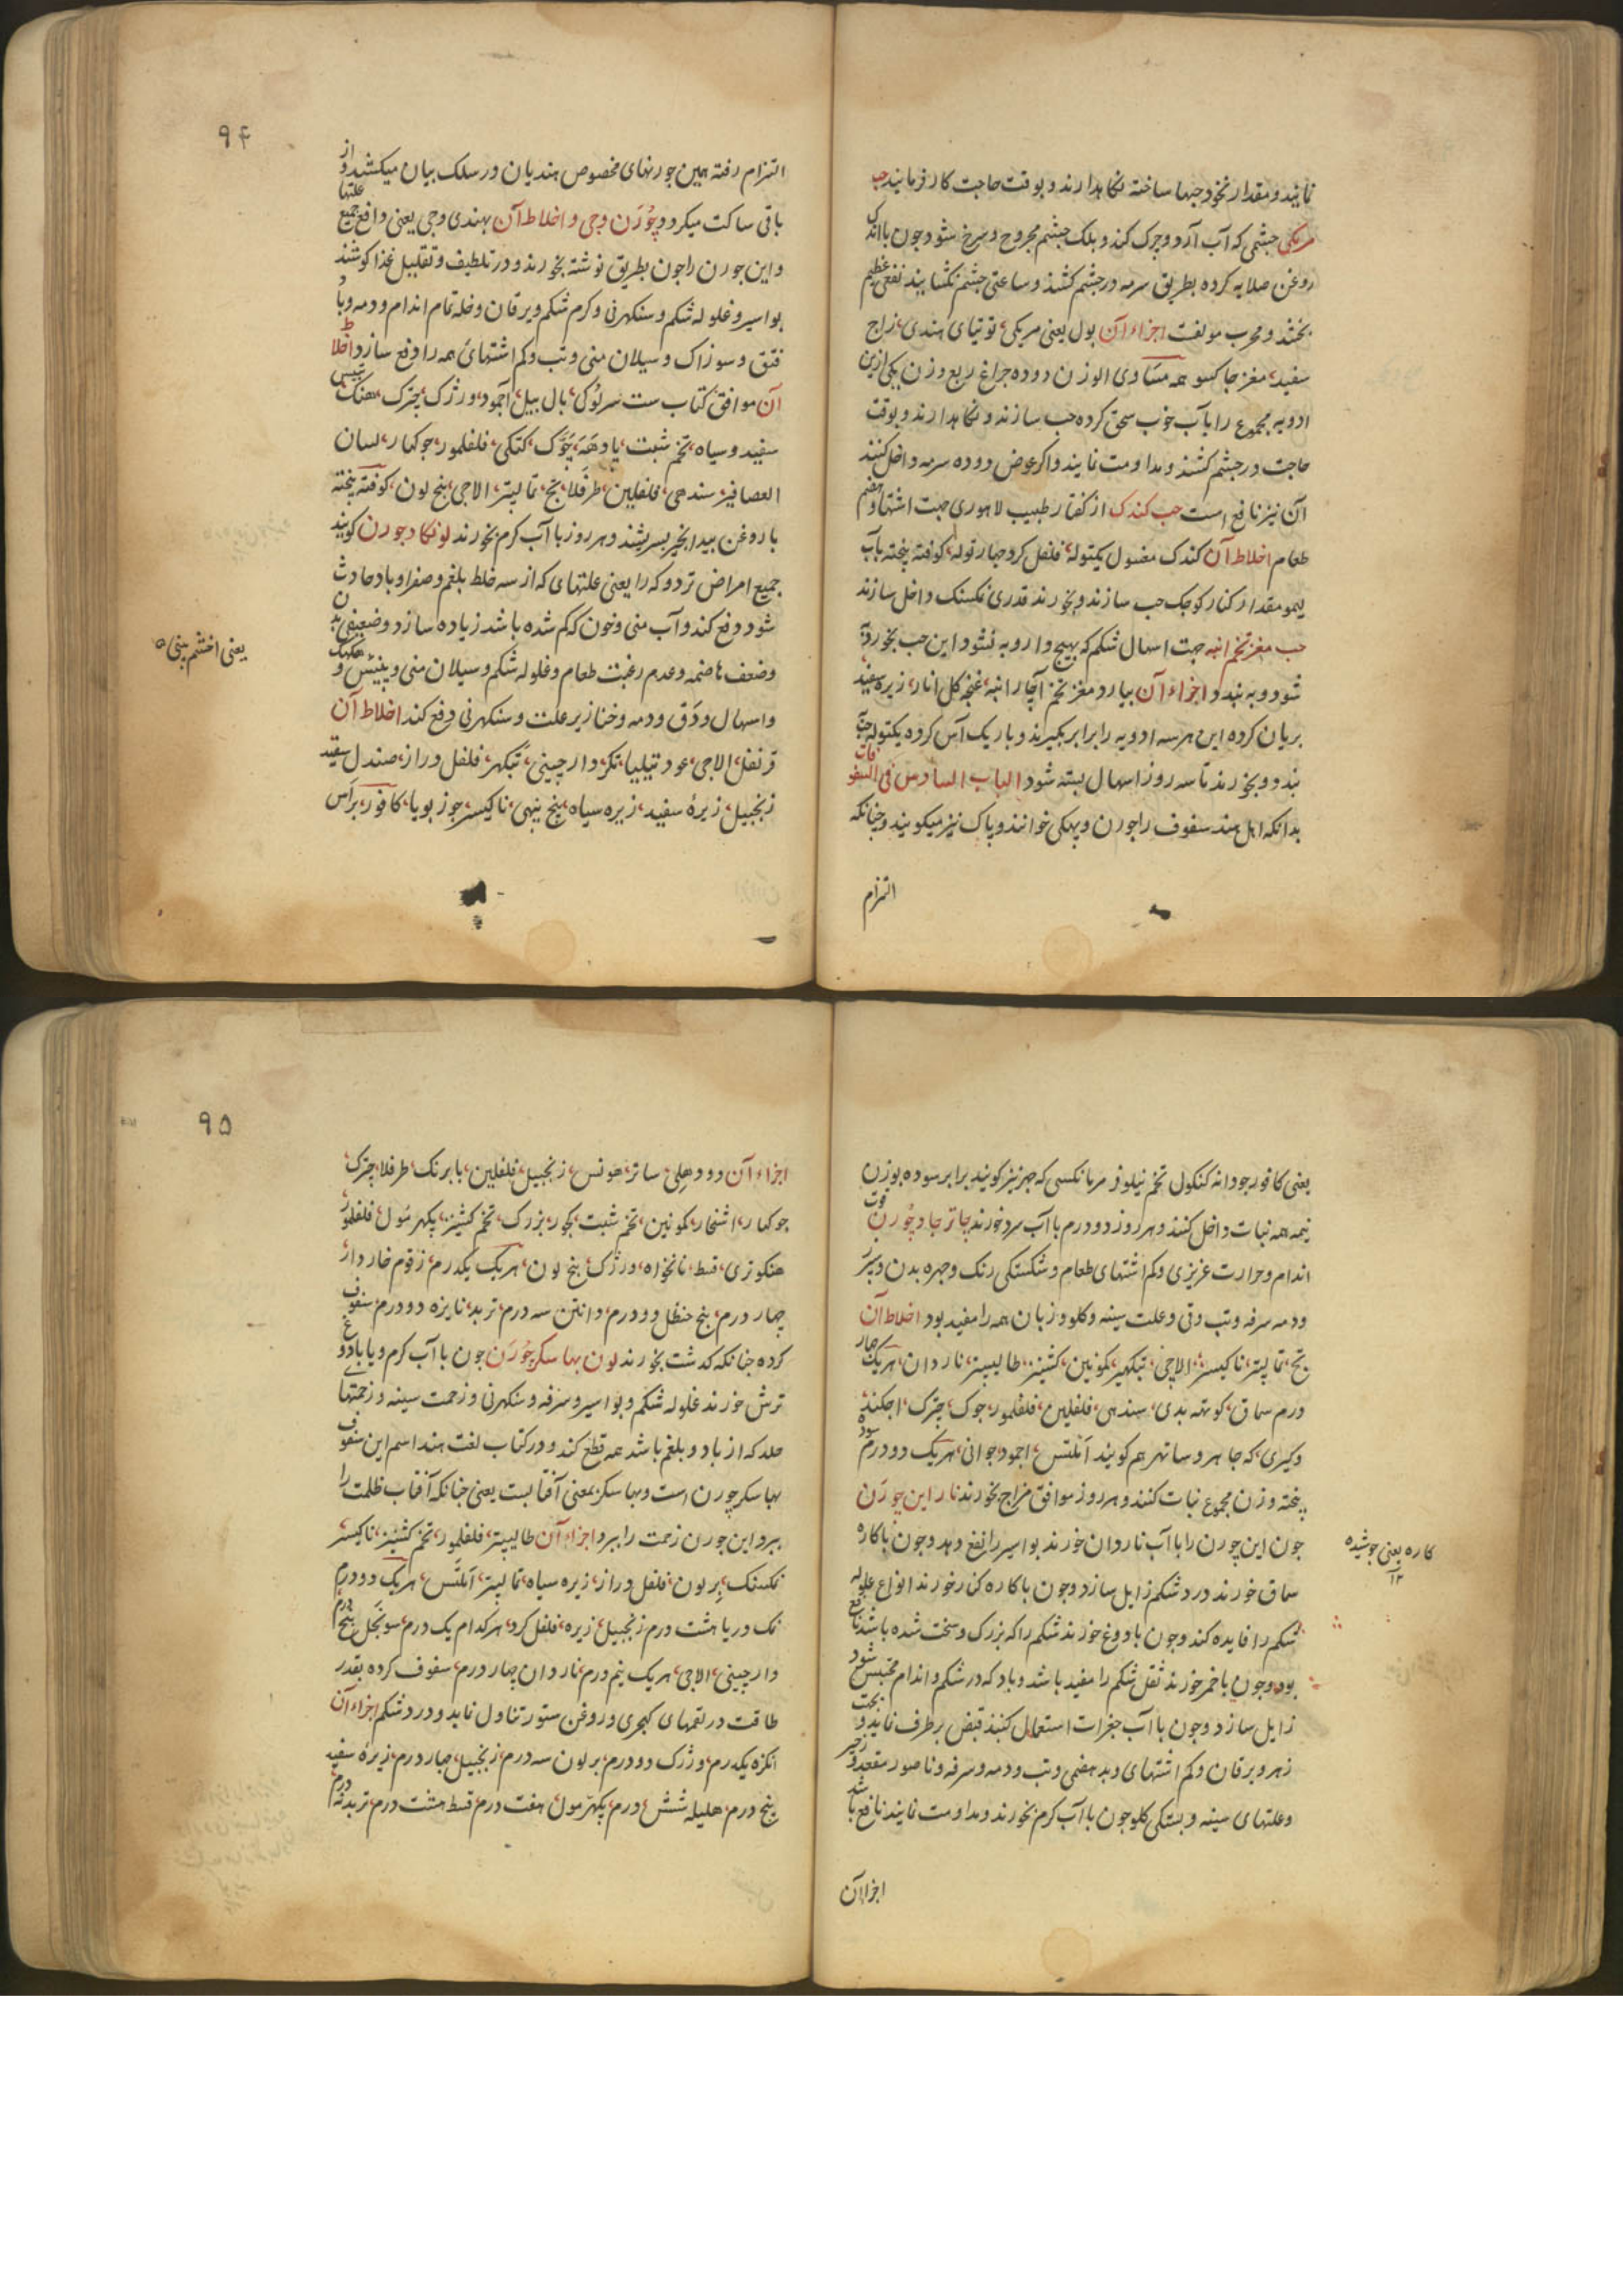 نمایند و مقدار نخود حبها ساخته نکاهدارند و بوقت حاجت کار فرمایند حب
مریکی چشمی که آب آرد و چرک کند و پلک چشم مجروح و سرخ شود چون با اندک
روغن صلایه کرده بطریق سرمه در چشم کشند و ساعتی چشم نکشایند نفعی عظیم
بخشد و مجرب مولفت اجزاء آن بول یعنی مریکی توتیای هندی زاج
سفید مغز چاکسو همه مساوی الوزن دوده چراغ ربع وزن یکی ازین
ادویه مجموع را بآب خوب سحق کرده حب سازند و نکاهدارند و بوقت
حاجت در چشم کشند و مداومت نمایند و اکر عوض دوده سرمه داخل کنند
آن نیز نافع است حب کندک از کفتار طبیب لاهوری جهت اشتها و هضم
طعام اخلاط آن کندک مغسول یکتوله فلفل کرد چهار توله کوفته پخته بآب
لیمو مقدار کنار کوچک حب سازند و بخورند قدری نمکسنک داخل سازند
حب مغز تخم انبه جهت اسهال شکم که بهیچ دارو به نشود این حب بخورد
شود و به بندد اجزاء آن بیارد مغز تخم آچار انبه غنچه کل انار زیره سفید
بریان کرده این هر سه ادویه را برابر بکیرند و باریک آس کرده یکتوله حب
بندد و بخورند تا سه روز اسهال بسته شود الباب السادس فی السفوفات
بدانکه اهل هند سفوف را چورن و پهکی خوانند و پاک نیز میکویند و چنانکه
التزام
۹۴
التزام رفته همین چورنهای مخصوص هندیان در سلک بیان میکشد و از
باقی ساکت میکردد چُورَن وجی و اخلاط آن بهندی وجی یعنی دافع جمیع علتها
و این چورن را چون بطریق نوشته بخورند و در تلطیف و تقلیل غذا کوشند
بواسیر و غلوله شکم و سنکهرنی و کرم شکم و یرقان و خله تمام اندام و دمه و باد
فتق و سوزاک و سیلان منی و تب و کم اشتهائی همه را دفع سازد اخلاط
آن موافق کتاب ست سرلوکی بال بیل آجمود ورژک چترک هنک
سفید و سیاه تخم شبت پادهَه چوَک کتکی فلفلمور جوکهار لسان
العصافیر سندهی فلفلین طرفلا بج تمالپتر الاچی پنج لون کوفته پخته
با روغن بیدانجیر بسریشند و هر روز با آب کرم بخورند لونکاد چورن کویند
جمیع امراض تردوکه را یعنی علتهای که از سه خلط بلغم و صفرا و باد حادث
شود دفع کند و آب منی و خون که کم شده باشد زیاده سازد و ضعیفی بدن
و ضعف هاضمه و عدم رغبت طعام و غلوله شکم و سیلان منی و پینس و هکهک
و اسهال و دَق و دمه و خنازیر علت و سنکهرنی دفع کند اخلاط آن
قرنفل الاچی عود تیلیا تکر دارچینی تبکهر فلفل دراز صندل سفید
زنجبیل زیره سفید زیره سیاه بیخ نیهی ناکیسر جوزبویا کافور براس
یعنی اخشم بینی
یعنی کافور جودانه کنکول تخم نیلوفر مربانکسی که چرنیز کویند برابر سوده بوزن
نیمه همه نبات داخل کنند و هر روز دو درم با آب سرد خورند چاتر جاد چُورن قوت
اندام و حرارت غریزی و کم اشتهای طعام و شکستکی رنک و چهره بدن و پیر
و دمه سرفه و تب دق و علت سینه و کلو و زبان همه را مفید بود اخلاط آن
تج تمالپتر ناکیسر الاچی تبکهیر کمونین کشنیز طالیپتر ناردان هر یک چهار
درم سماق کوتهه بدی سندهی فلفلین فلفلمور جوک چترک اجکند
و کیری که جاهر و ساتهر هم کویند آملتس اجمود جوانی هر یک دو درم سوده
پخته وزن مجموع نبات کنند و هر روز موافق مزاج بخورند نارااین چورَن
چون این چورن را با آب ناردان خورند بواسیر را نفع دهد و چون با کاره
سماق خورند درد شکم زایل سازد و چون با کاره کنار خورند انواع علوله
شکم را فایده کند و چون با دوغ خورند شکم را که بزرک و سخت شده باشد نافع
بود و چون با خمر خورند ثقل شکم را مفید باشد و باد که در شکم و اندام محتبس شود
زایل سازد و چون با آب جغرات استعمال کنند قبض برطرف نماید و بجهت
زهر و یرقان و کم اشتهای و بدهضمی و تب و دمه و سرفه و ناصور مقعد و زحیر
و علتهای سینه و بستکی کلو چون با آب کرم بخورند و مداومت نمایند نافع باشد
کاره یعنی جوشیده ۱۲
اجزاآن
۹۵
اجزاء آن دودهلی ساتر هونس زنجبیل فلفلین بابرنک طرفلا چترک
جوکهار اشنخار کمونین تخم شبت کچور بزرک تخم کشنیز پکهرمُول فلفلمور
هنکوتری قسط نانخواه ورژک پنج لون هر یک یکدرم زقوم خاردار
چهار درم بیخ حنظل دو درم دانتن سه درم تربد نایزه دو درم سفوف
کرده چنانکه کدشت بخورند لون بهاسکر چُورَن چون با آب کرم و یا با دوغ
ترش خورند غلوله شکم و بواسیر و سرفه و سنکهرنی و زحمت سینه و زحمتهای
جلد که از باد و بلغم باشد همه قطع کند و در کتاب لغت هند اسم این سفوف
بهاسکر چورن است و بهاسکر بمعنی آفتابست یعنی چنانکه آفتاب ظلمت را
ببرد این چورن زحمت را ببرد اجزاء آن طالیپتر فلفلمور تخم کشنیز ناکیسر
نمکسنک بر لون فلفل دراز زیره سیاه تمالپتر آملتَس هر یک دو درم
نمک دریا هشت درم زنجبیل زیره فلفل کرد هر کدام یک درم سونچل پنج درم
دارچینی الاچی هر یک نیم درم ناردان چهار درم سفوف کرده بقدر
طاقت در لقمهای کهچری و روغن ستور تناول نماید و درد شکم اجزاء آن
انکزه یکدرم ورژک دو درم بر لون سه درم زنجبیل چهار درم زیره سفید
پنج درم هلیله شش درم پکهرمول هفت درم قسط هشت درم تربد نه درم